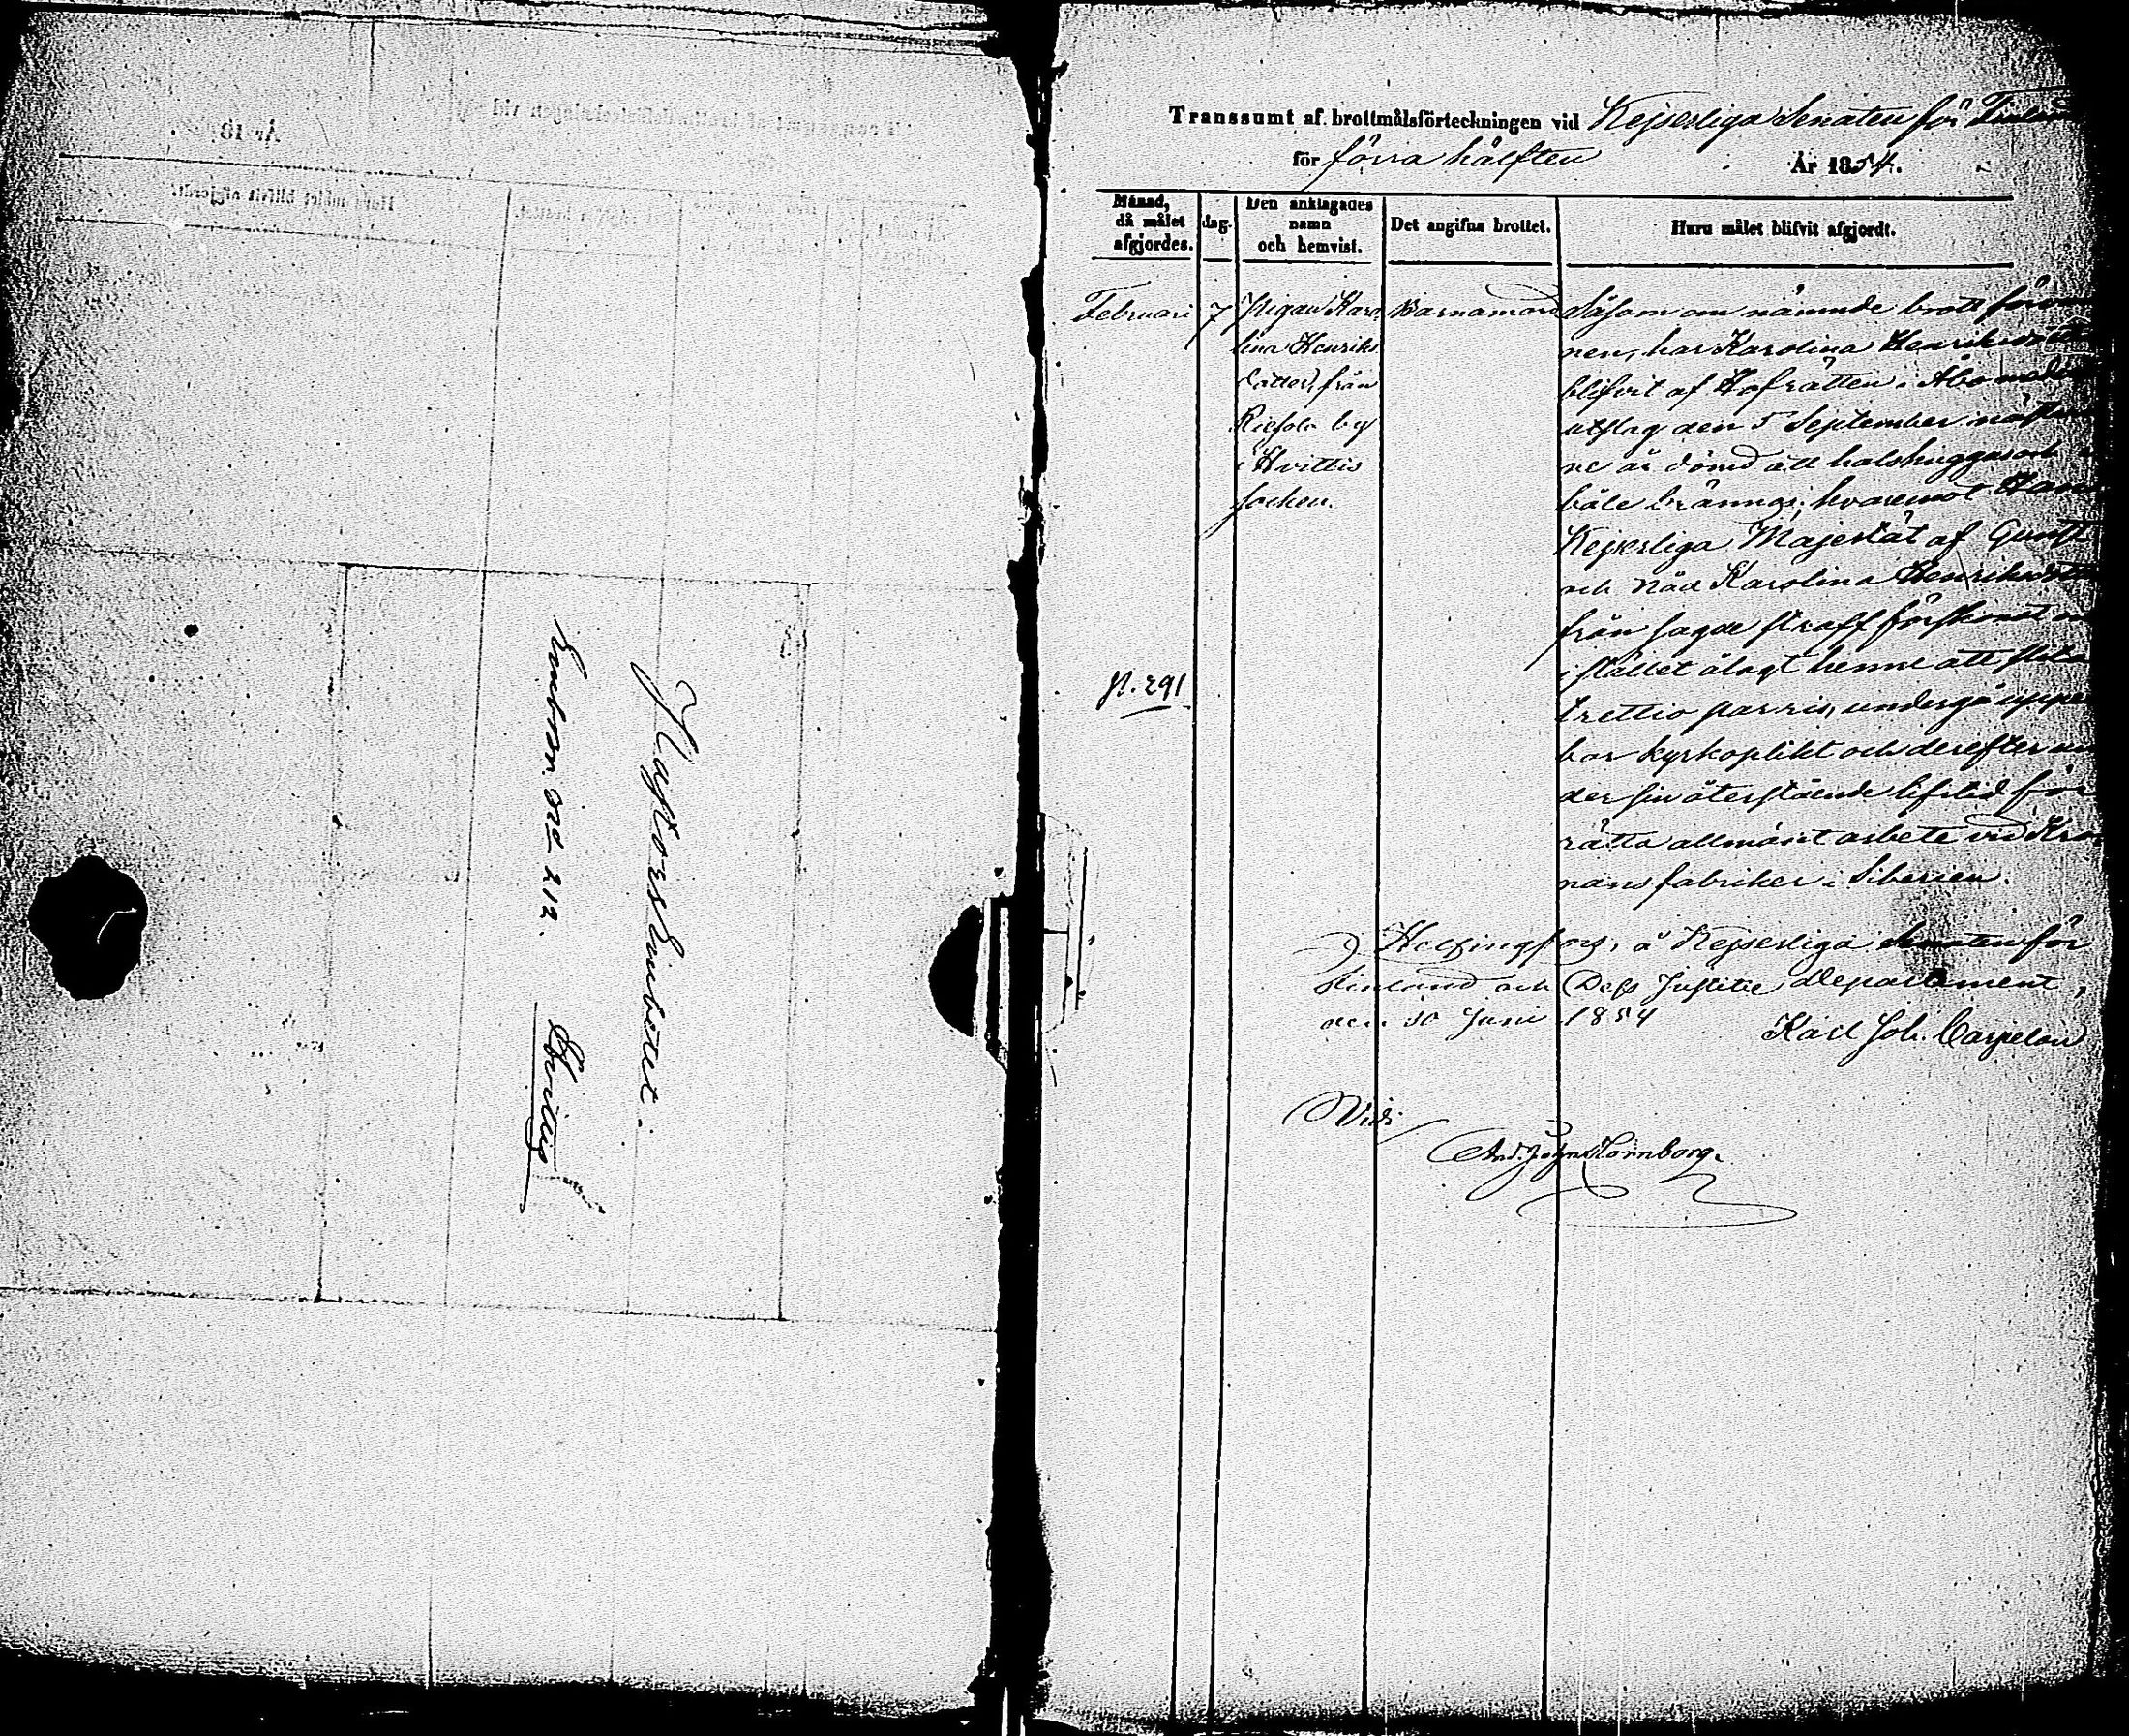 Pastorsembetet.
Hvittis
Transsumt af brottmålsförteckningen vid Kejserliga Senaten för Finland
för förra hälften År 1854.
Månad, då målet afgjordes.
dag.
Den anklagades namn och hemvist.
Det angifna brottet.
Huru målet blifvit afgjordt.
Februari
7
Pigan Karo
lina Henriks
dotter, från
by
i Hvittis
socken.
Barnamord
Såsom om nämnde brott
nen, har Karolina Henriksdotter
blifvit af Hofrätten i Åbo
utslag den 5 September
ne år dömd att halshuggas och i
båle brännas; hvaremot Hans
Kejserliga Majestät af Gunst
och Nåd Karolina Henriksdotter
från sagde straff förskonat
i stället ålagt henne att
trettio par ris, undergå uppen
bar kyrkoplikt och derefter un
der sin återstående lifstid för
rätta allmänt arbete vid Kro
nans fabriker i Siberien.
N. 291
Helsingfors, å Kejserliga Senaten för
Finland och Dess Justitie Departement,
den 30 Juni 1854
Karl Joh. Carpelan
Vidi
And. Johan Hornborg.